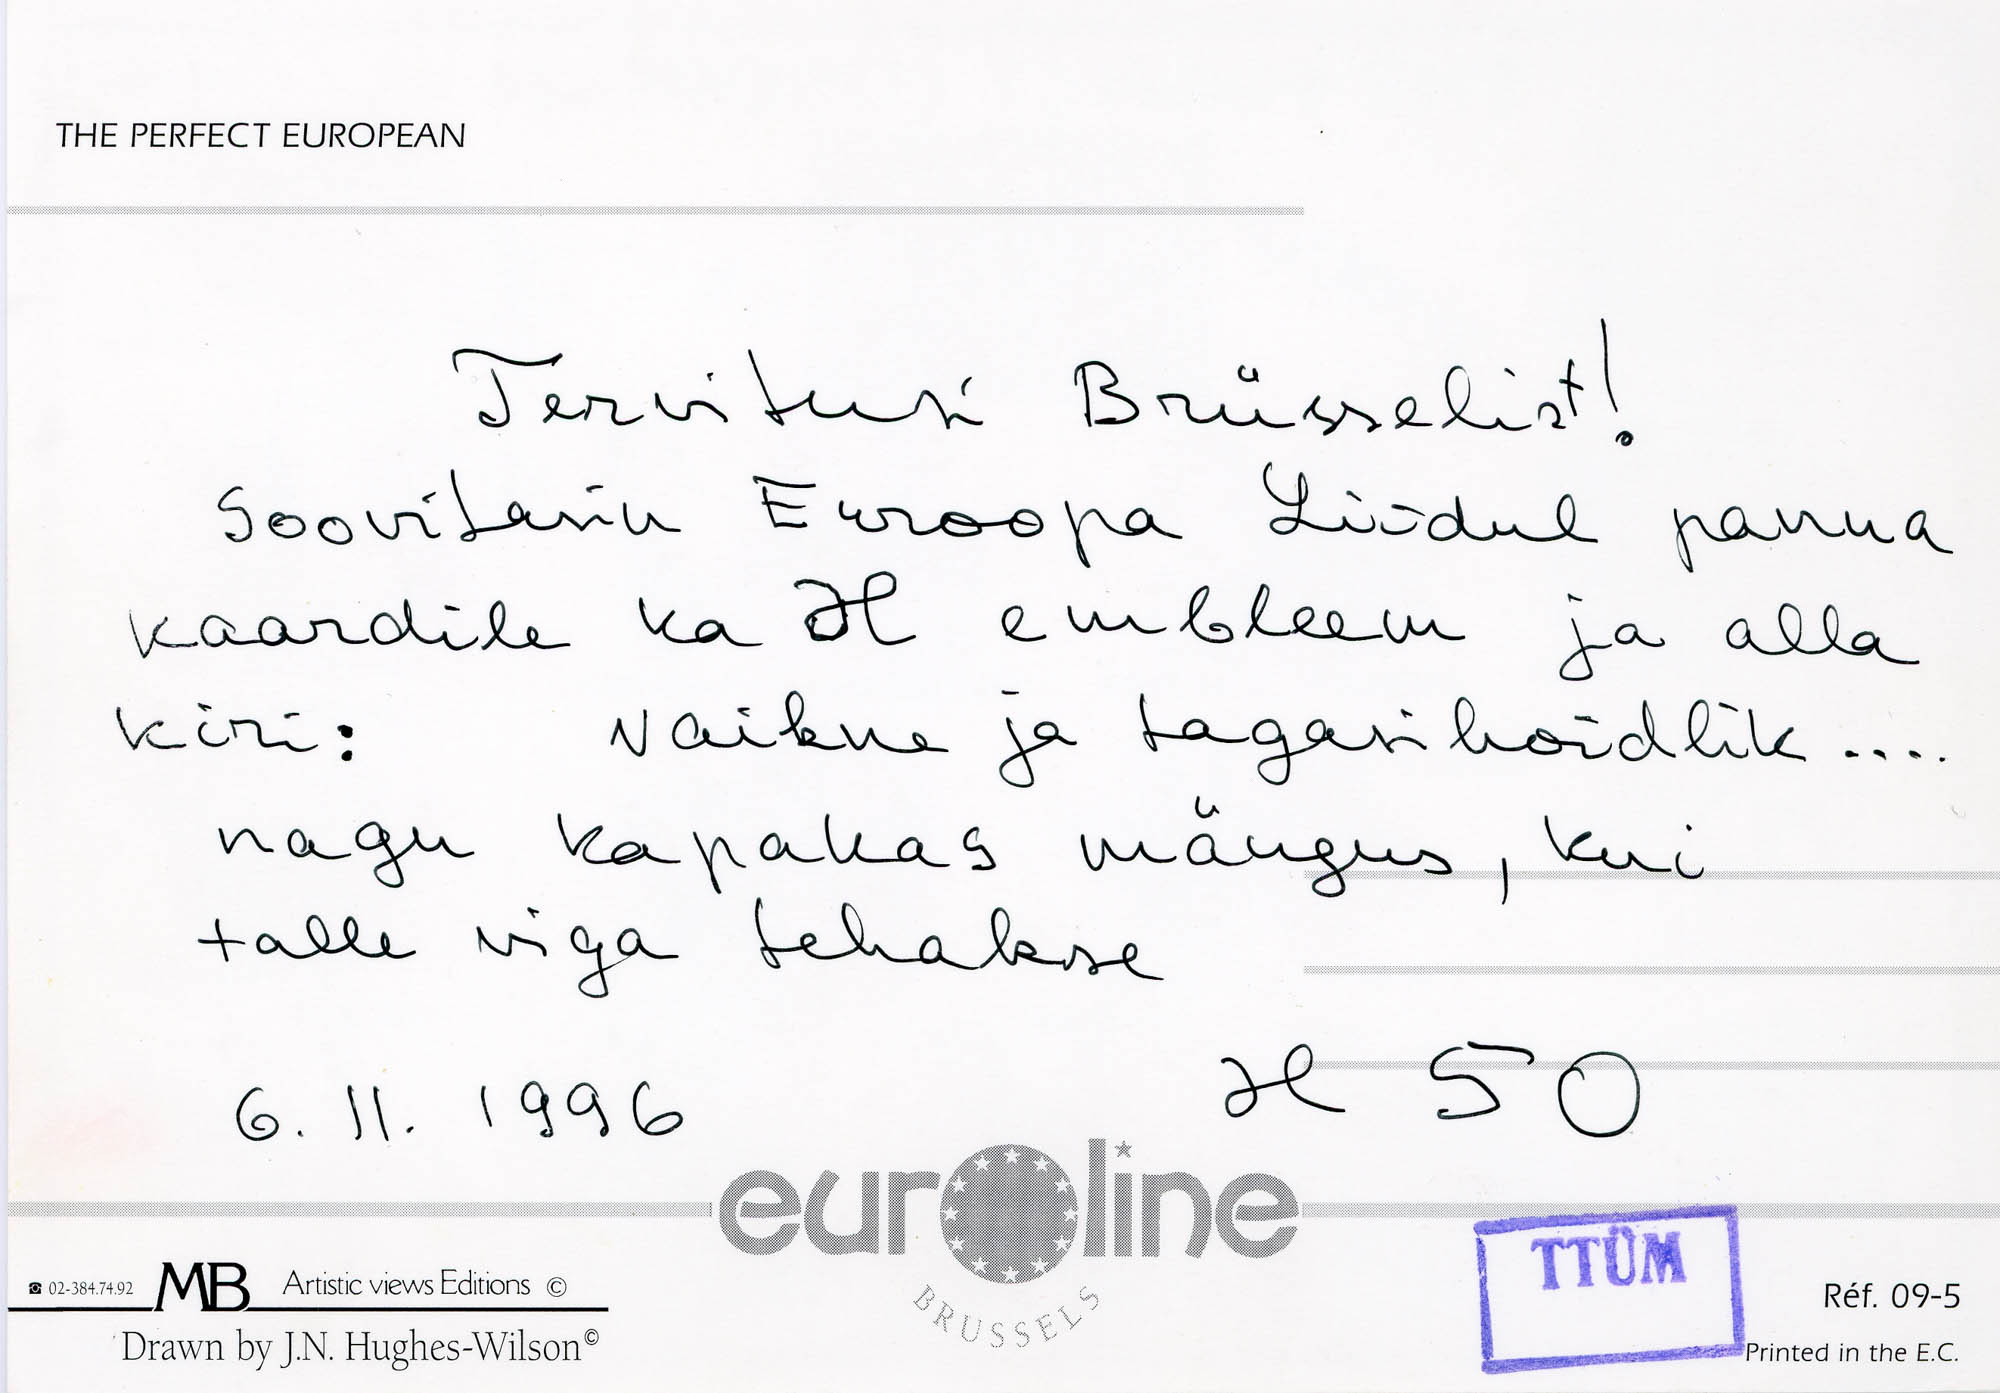 THE PERFECT EUROPEAN
Tervitusi Brüsselist!
Soovitasin Euroopa Liidul panna
kaardile ka H embleem ja alla
kiri: Vaikne ja tagasihoidlik....
nagu kapakas mängus, kui
talle viga tehakse
6. 11. 1996 H 50
euroline
BRUSSELS
TTÜM
☎ 02-384.74.92 MB Artistic views Editions ©
Drawn by J.N. Hughes-Wilson©
Réf. 09-5
Printed in the E.C.